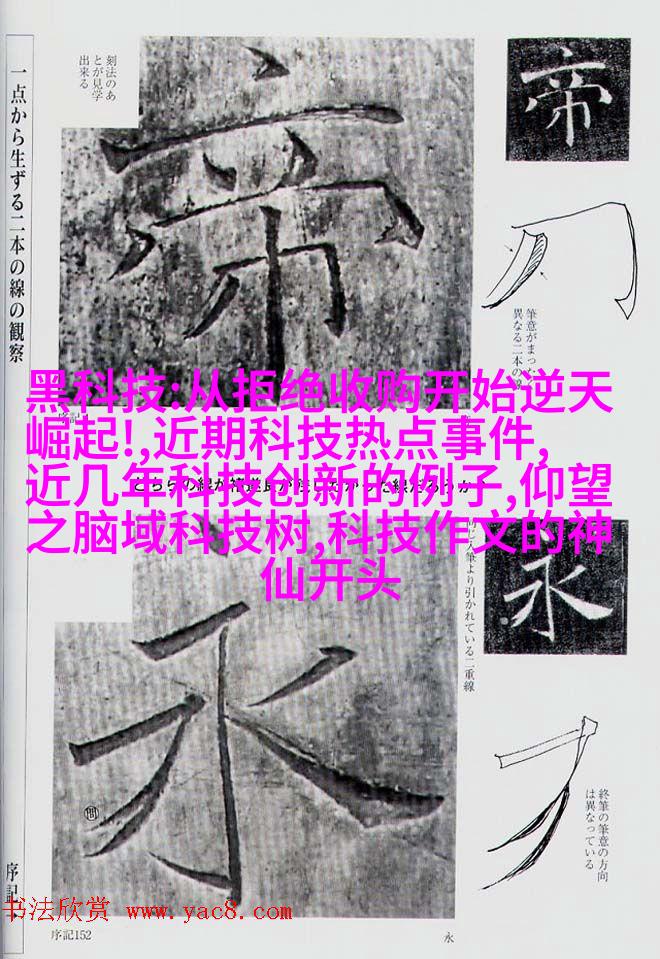 一点から生ずる二本の線の観察
刻法のあ
とが見学
出来る
帝
帝
筆意がまった
異なる二本の
黑科技:从拒绝收购开始逆天
崛起!,近期科技热点事件,
近几年科技创新的例子,仰望
之脑域科技树,科技作文的神
仙开头
同じ人筆より引かれている二重線
永
永
終筆の筆意の方向
は異なっている
序記
书法欣赏 www.yac8.com
序記152
永